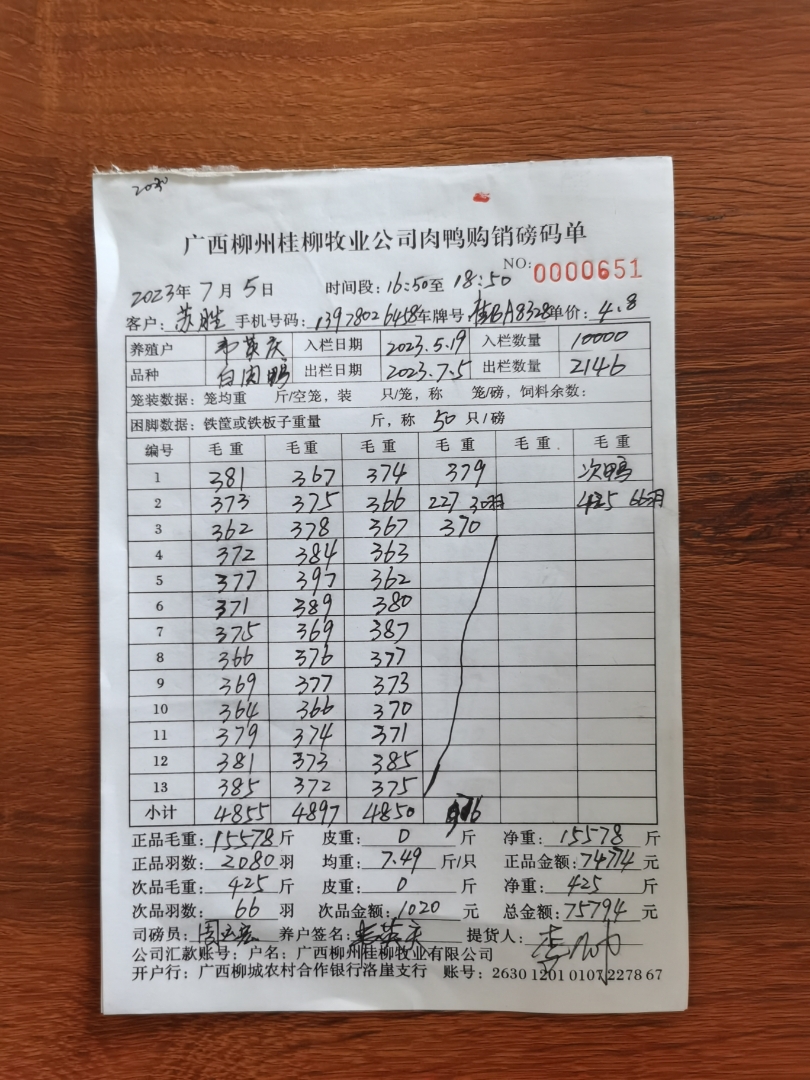 2030
广西柳州桂柳牧业公司肉鸭购销磅码单
NO: 0000651
2023年 7月 5日 时间段: 16:50至 18:50
客户: 苏胜 手机号码: 13978026458 车牌号: 桂BA8328 单价: 4.8
养殖户 韦英庆 入栏日期 2023.5.19 入栏数量 10000
品种 白肉鸭 出栏日期 2023.7.5 出栏数量 2146
笼装数据: 笼均重 斤/空笼, 装 只/笼, 称 笼/磅, 饲料余数:
困脚数据: 铁筐或铁板子重量 斤, 称 50 只/磅
编号 毛重 毛重 毛重 毛重 毛重 毛重
1 381 367 374 379 次鸭
2 373 375 366 227 30羽 425 66羽
3 362 378 367 370
4 372 384 363
5 377 397 362
6 371 389 380
7 375 369 387
8 366 376 377
9 369 377 373
10 364 366 370
11 379 374 371
12 381 373 385
13 385 372 375
小计 4855 4897 4850 976
正品毛重: 15578 斤 皮重: 0 斤 净重: 15578 斤
正品羽数: 2080 羽 均重: 7.49 斤/只 正品金额: 74774 元
次品毛重: 425 斤 皮重: 0 斤 净重: 425 斤
次品羽数: 66 羽 次品金额: 1020 元 总金额: 75794 元
司磅员: 养户签名: 韦英庆 提货人:
公司汇款账号: 户名: 广西柳州桂柳牧业有限公司
开户行: 广西柳城农村合作银行洛崖支行 账号: 2630 1201 0107 2278 67